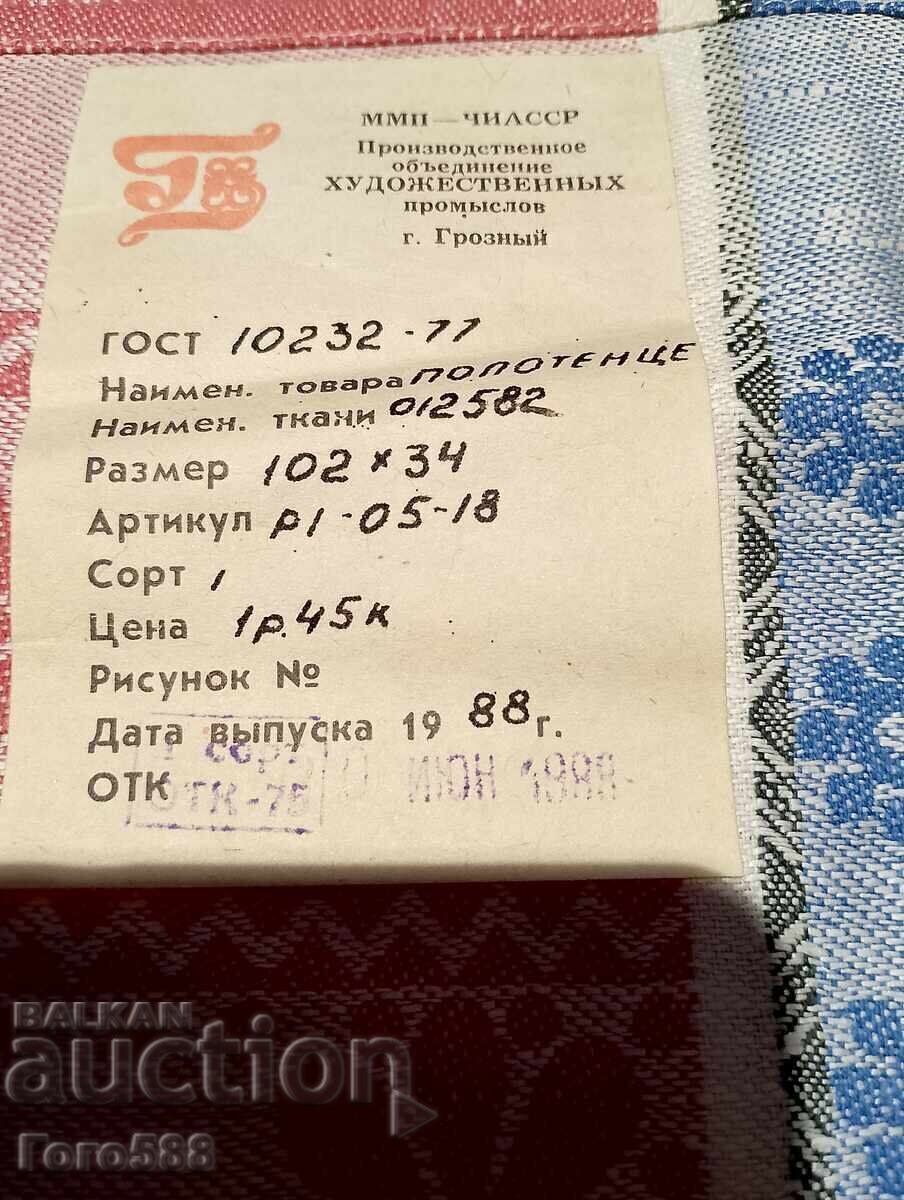 ММП — ЧИАССР
Производственное
объединение
ХУДОЖЕСТВЕННЫХ
промыслов
г. Грозный
ГОСТ 10232-77
Наимен. товара ПОЛОТЕНЦЕ
Наимен. ткани 012582
Размер 102 x 34
Артикул р1-05-18
Сорт 1
Цена 1р.45к
Рисунок №
Дата выпуска 19 88 г.
сорт
ОТК
ОТК-75 ИЮН 1988
BALKAN
auction
Гого588